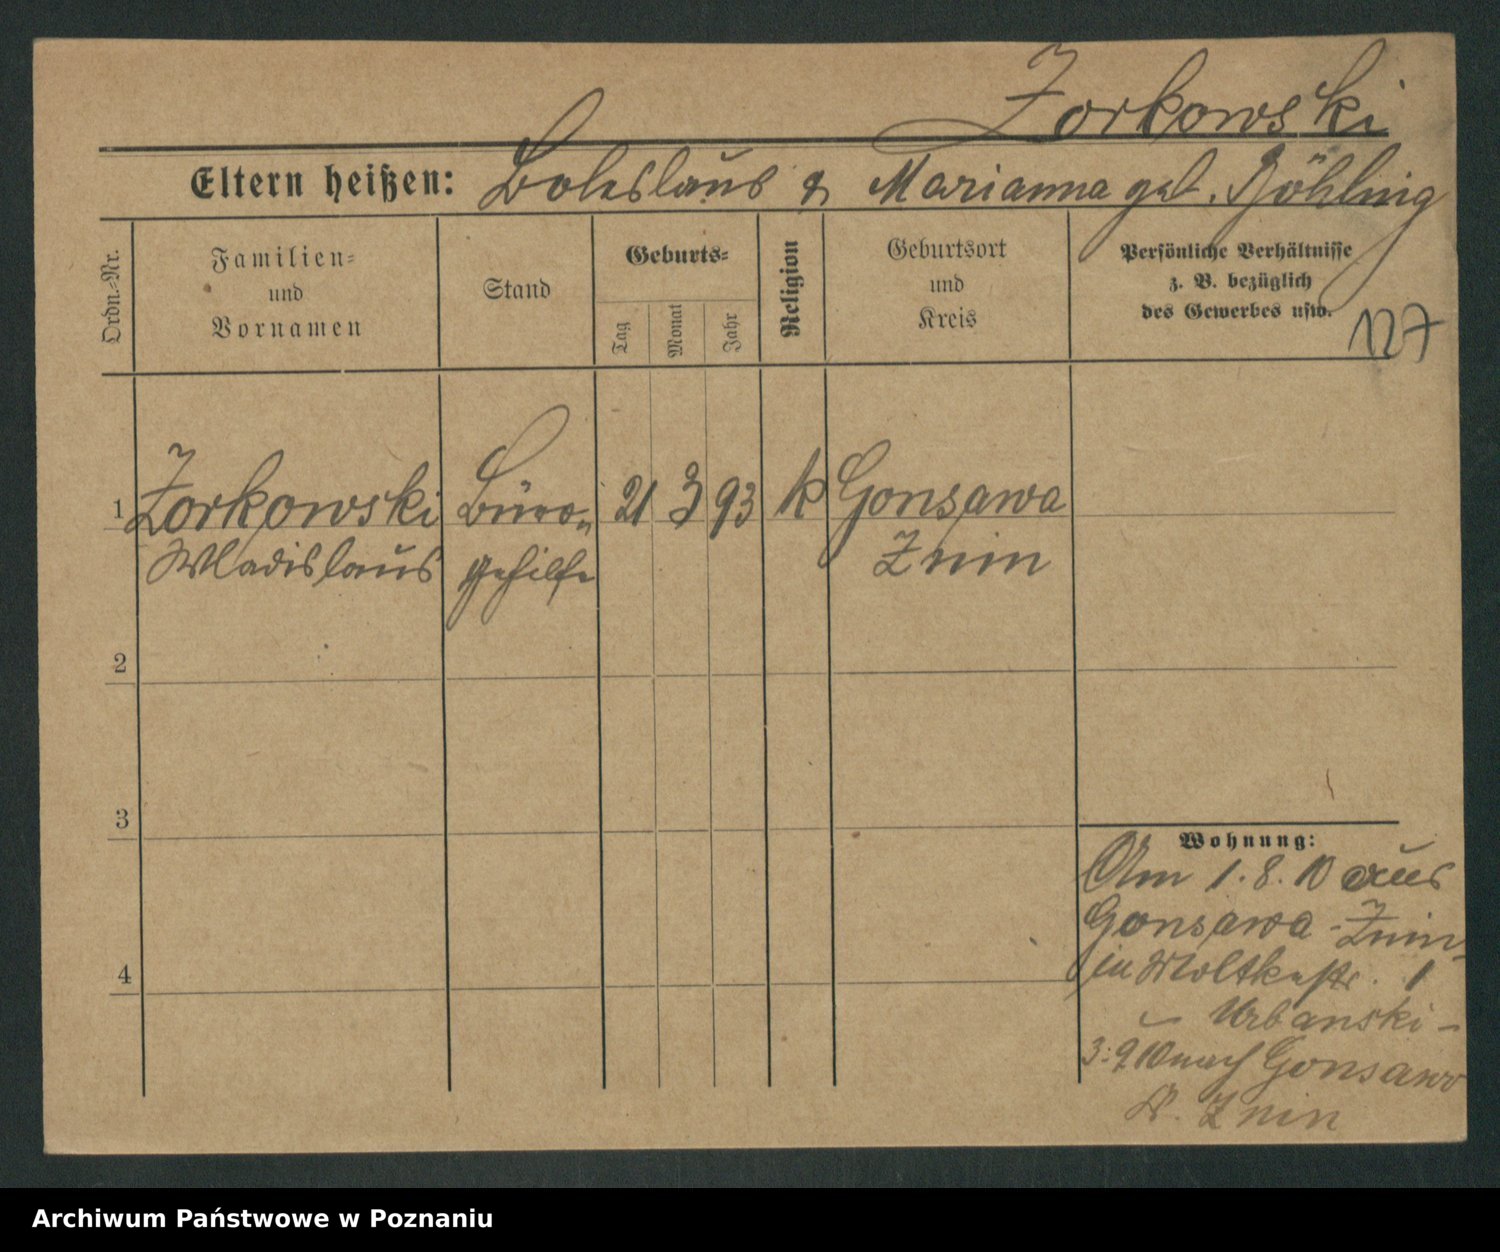 Zorkowski
Eltern heißen: Boleslaus & Marianna geb. Böhling
Ordn.-Nr.
Familien-
und
Vornamen
Stand
Geburts-
Tag
Monat
Jahr
Religion
Geburtsort
und
Kreis
Persönliche Verhältnisse
z. B. bezüglich
des Gewerbes usw.
127
1 Zorkowski Büro- 21 3 93 k Gonsawa
Wladislaus gehilfe Znin
2
3
Wohnung:
Am 1.8.10 aus
Gonsawa - Znin
in Moltkestr. 1
- Urbanski -
3.9.10 nach Gonsawa
K. Znin
4
Archiwum Państwowe w Poznaniu